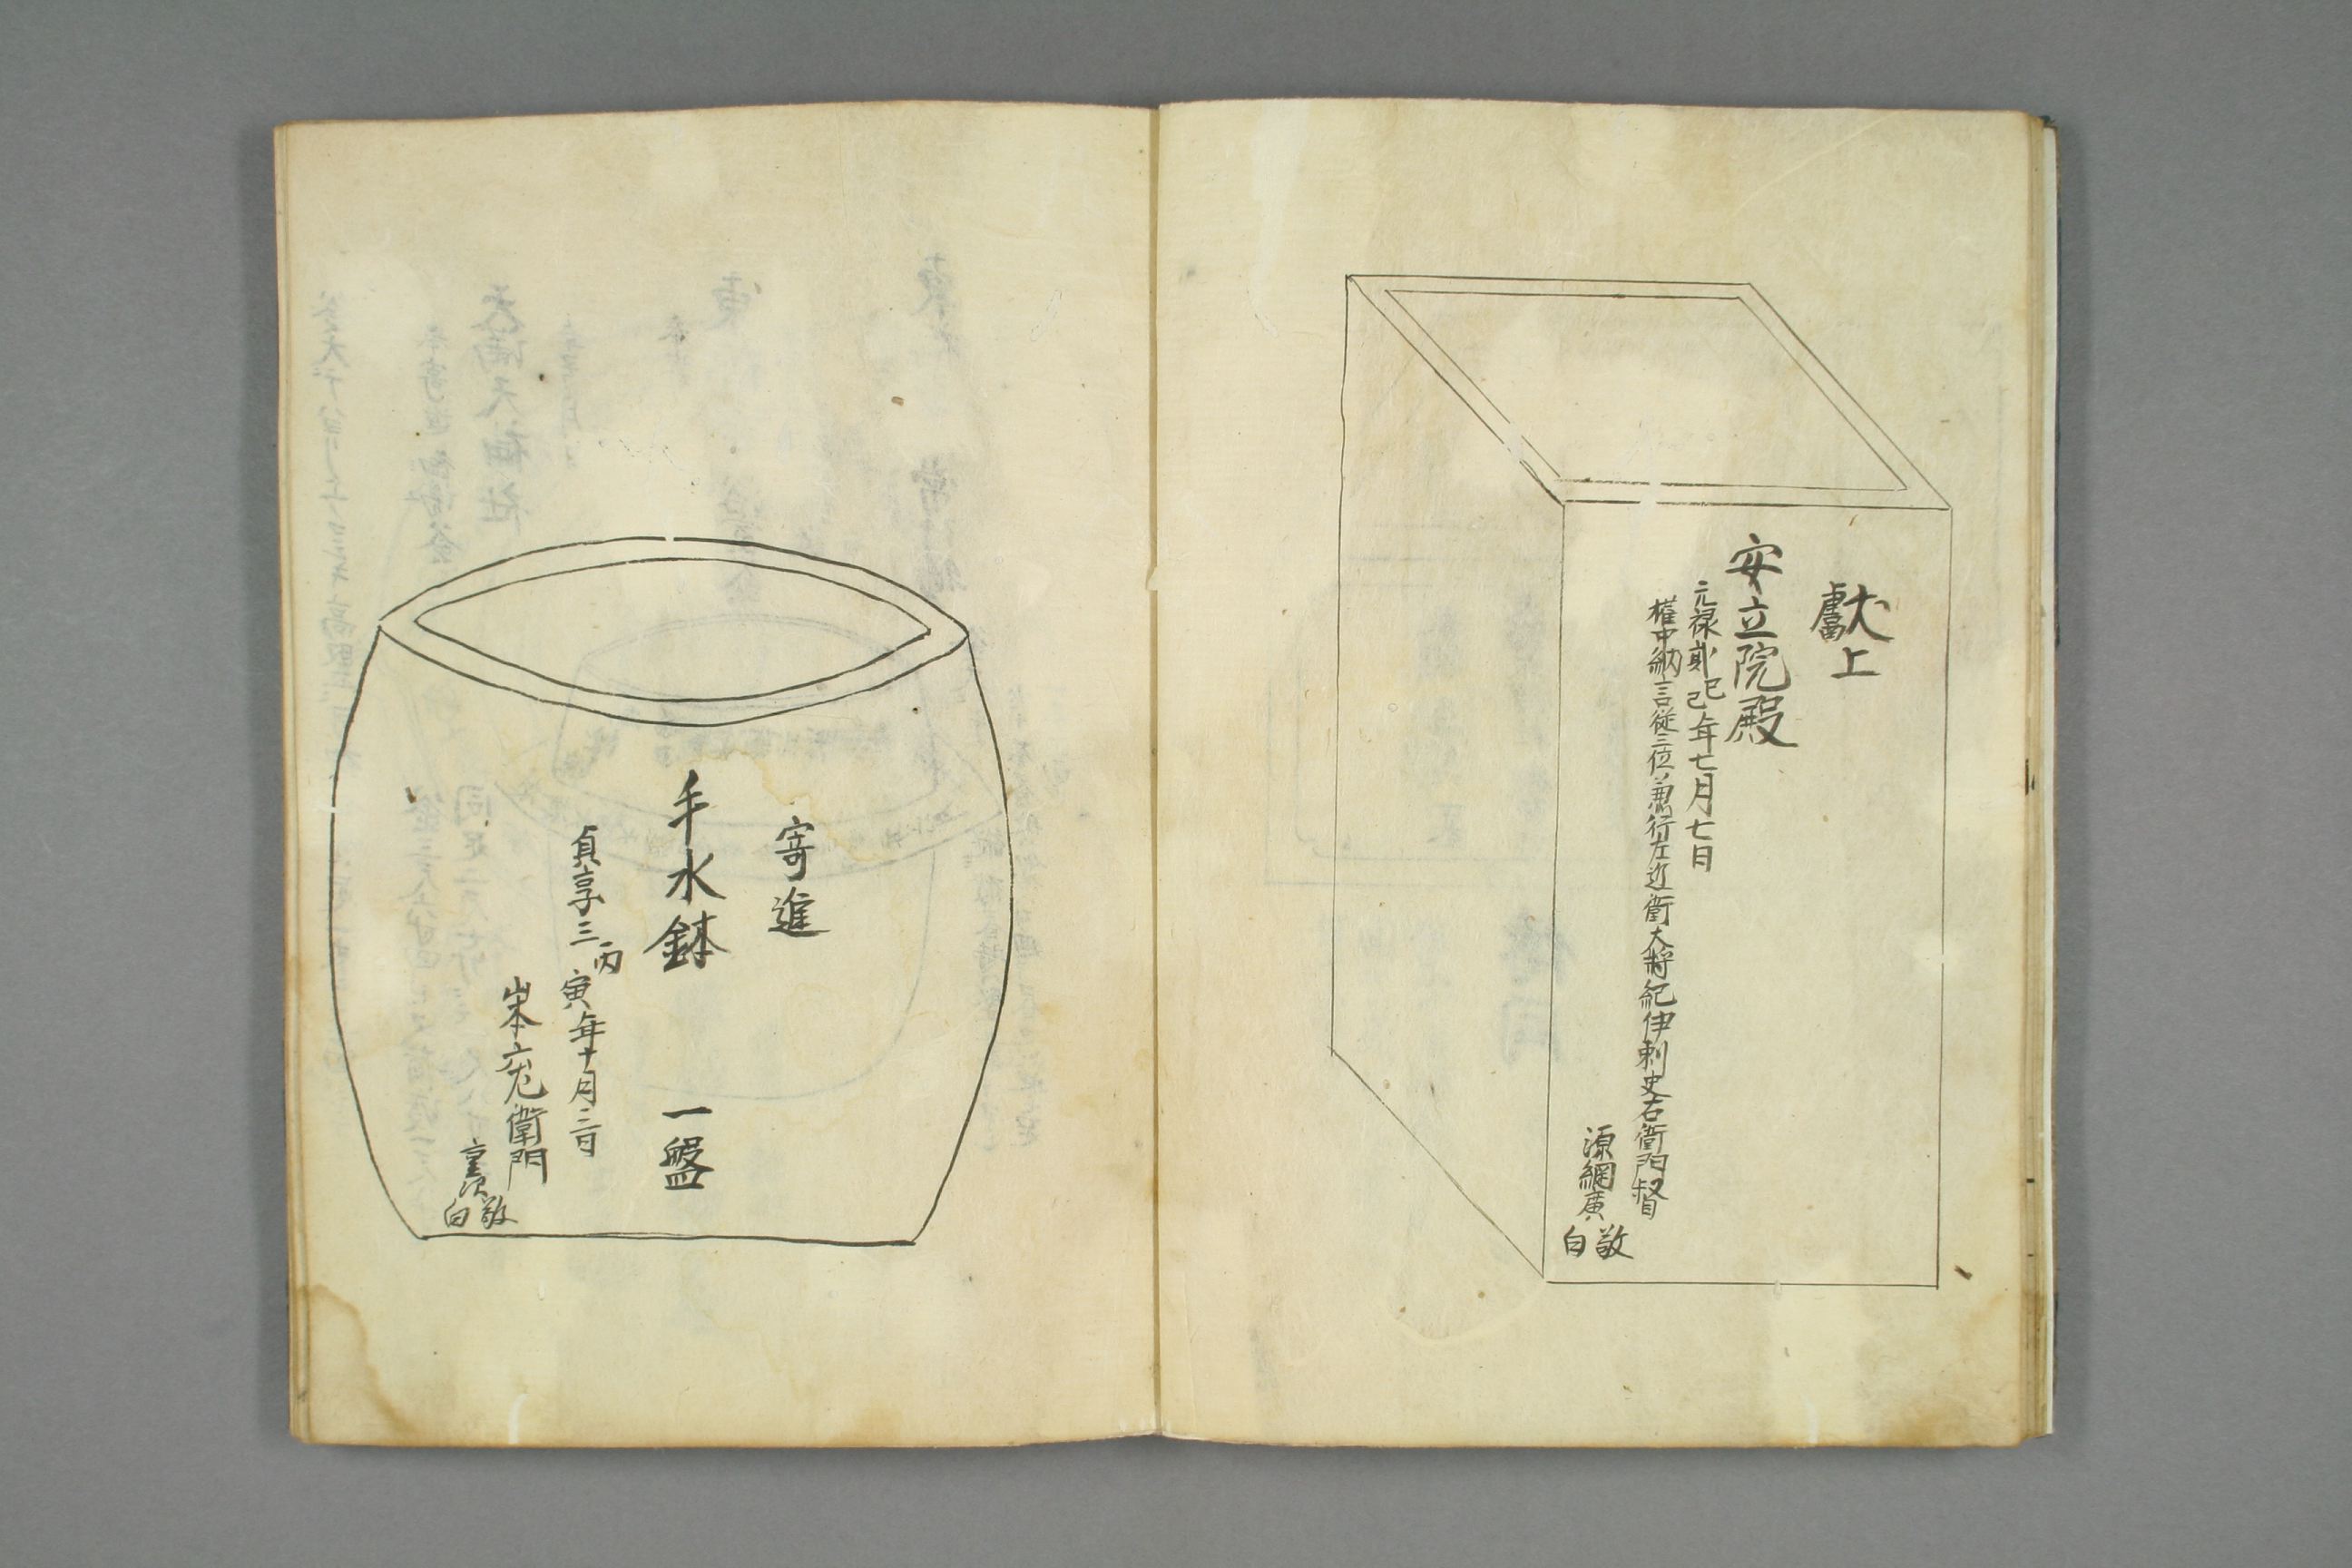 獻上
安立院殿
元禄貳己巳年七月七日
權中納言従三位兼行左近衛大將紀伊刺史右衛門督
源綱廣
敬白
寄進
手水鉢 一盤
貞享三丙寅年十月二日
山本六左衛門
敬白